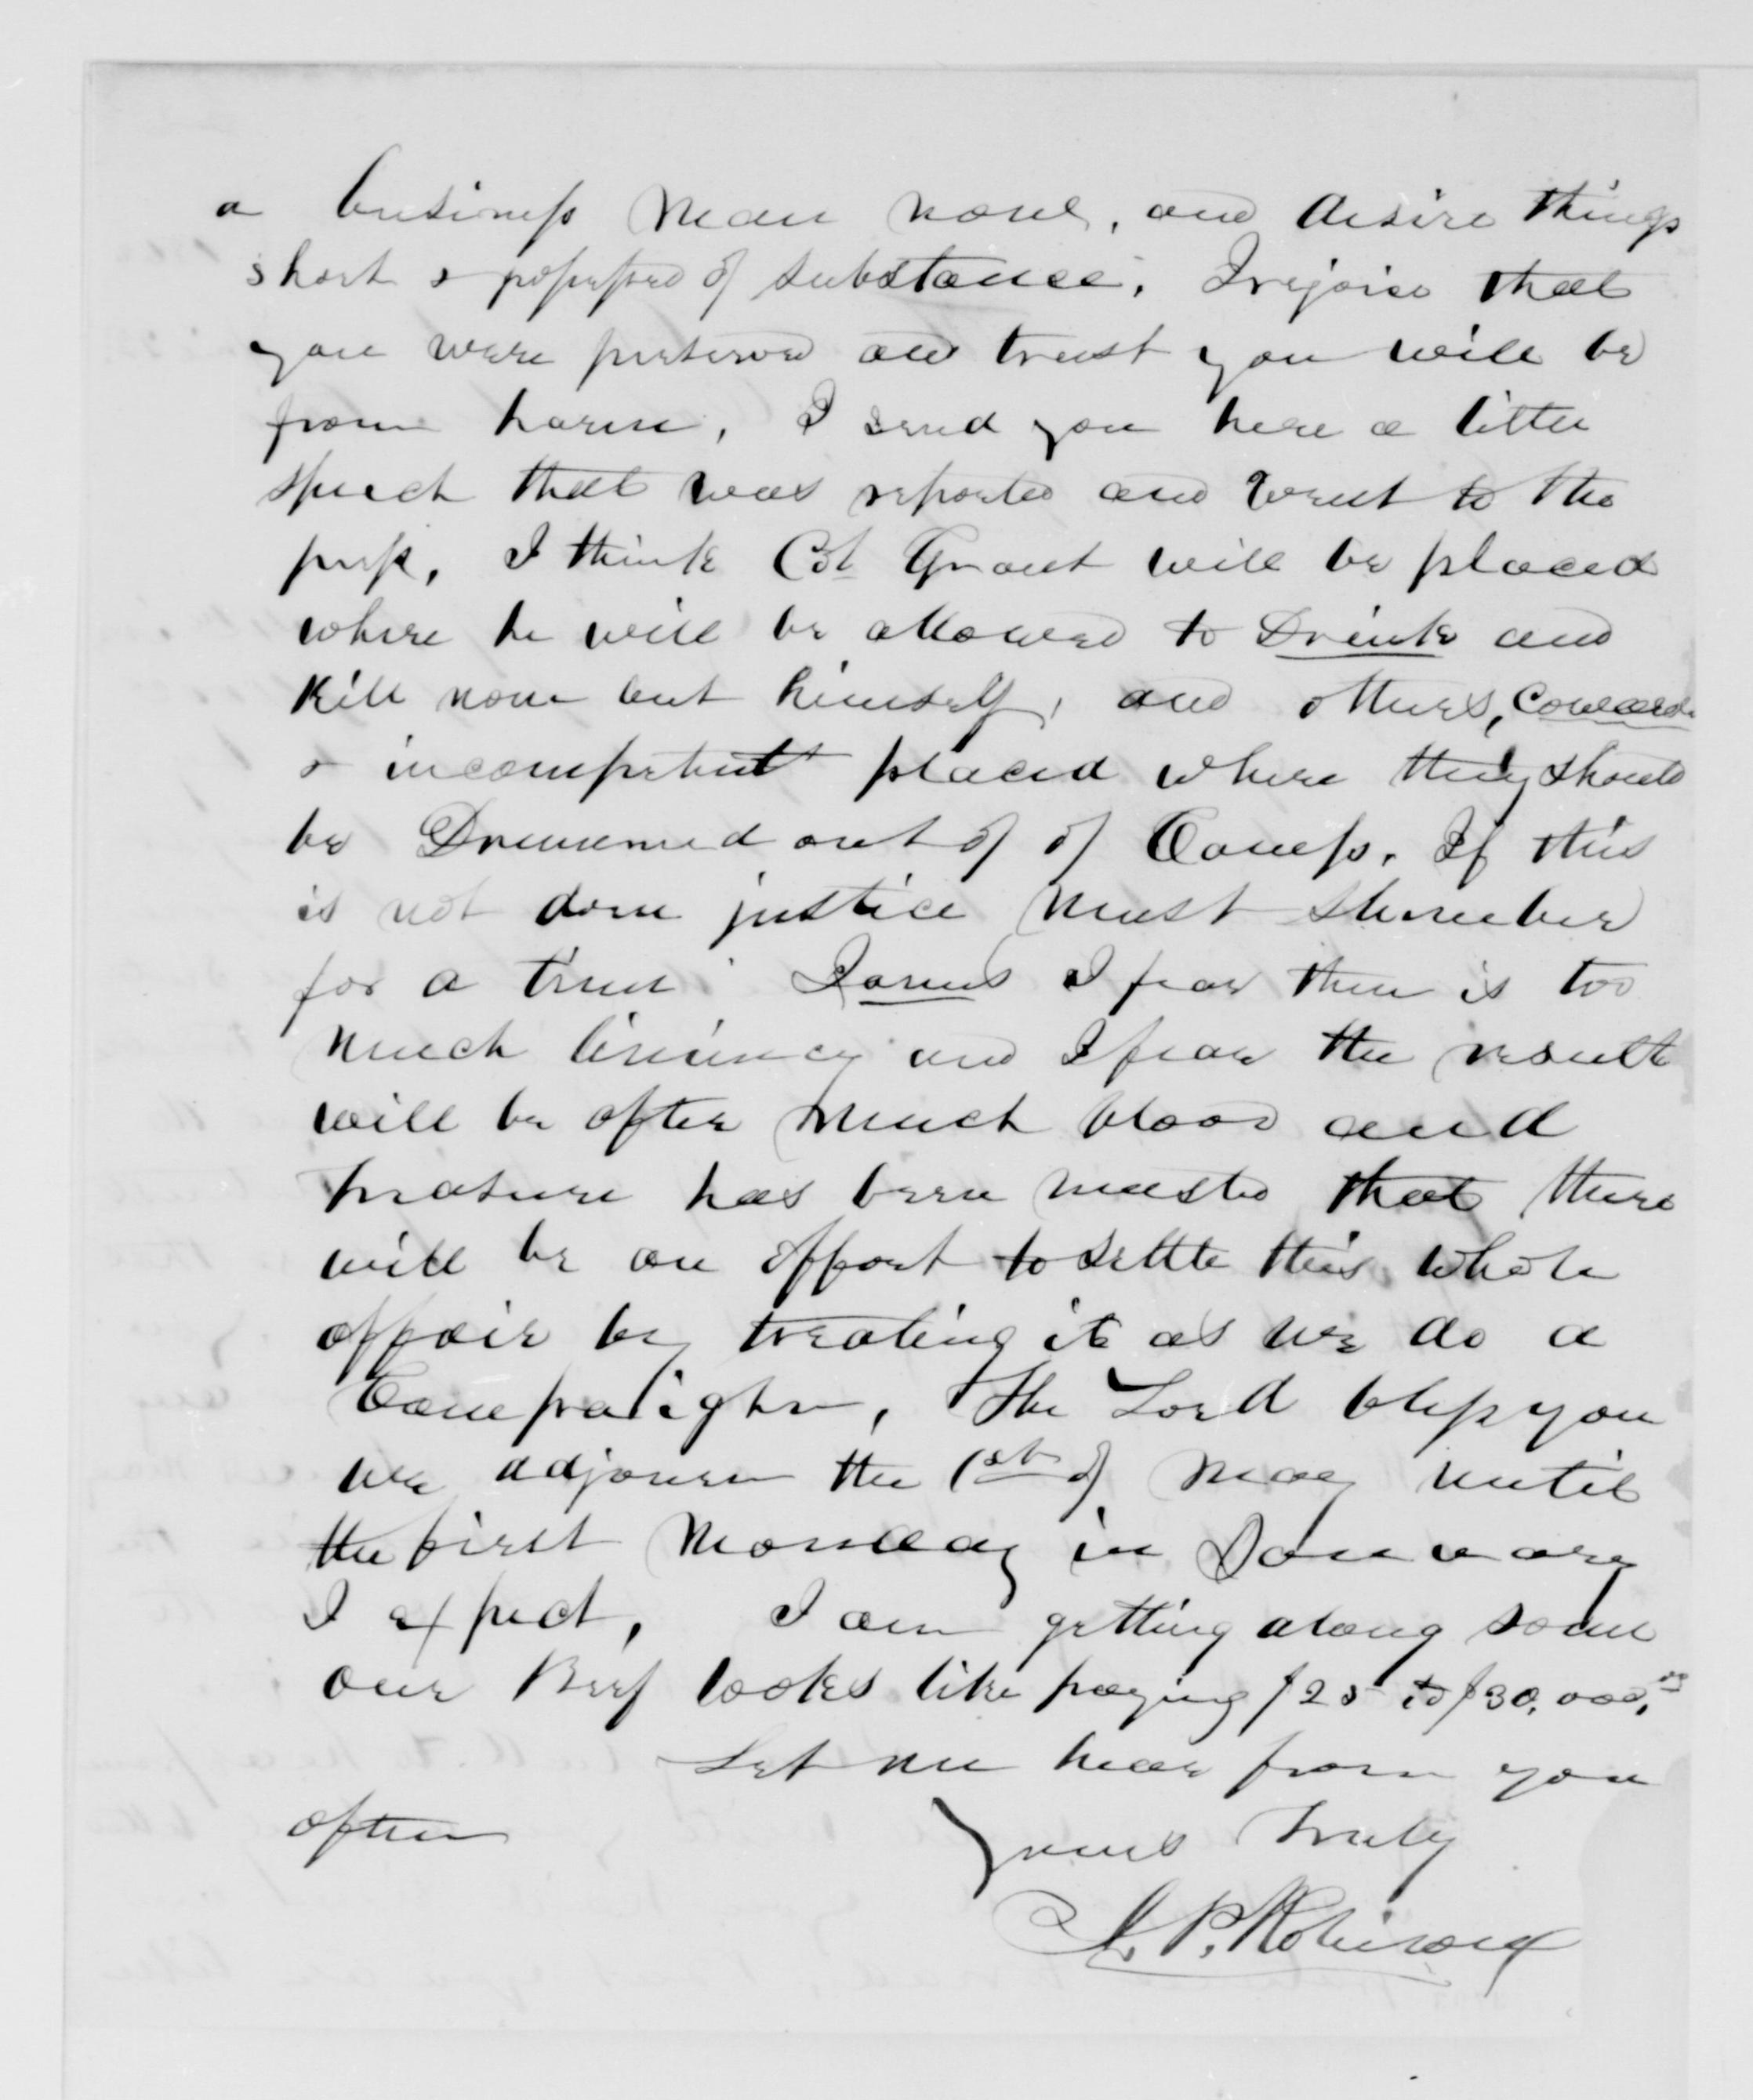 a business man now, and desire things
short & possessed of substance. I rejoice that
you were preserved and trust you will be
from harm, I send you here a little
speech that was reported and went to the
press, I think Col Grant will be placed
where he will be allowed to Drink and
kill none but himself, and others, cowards
& incompetent placed where they should
be Drummed out of of Camp. If this
is not done justice must slumber
for a time. James I fear there is too
much leniency and I fear the result
will be after much blood and
treasure has been wasted that there
will be an effort to settle this whole
affair by treating it as we do a
Campaighn, The Lord bless you
we adjourn the 1st of May until
the first Monday in January
I expect, I am getting along some
our Beef looks like paying $25 to $30,000,00
Let me hear from you
often Yours Truly
J. P. Robison